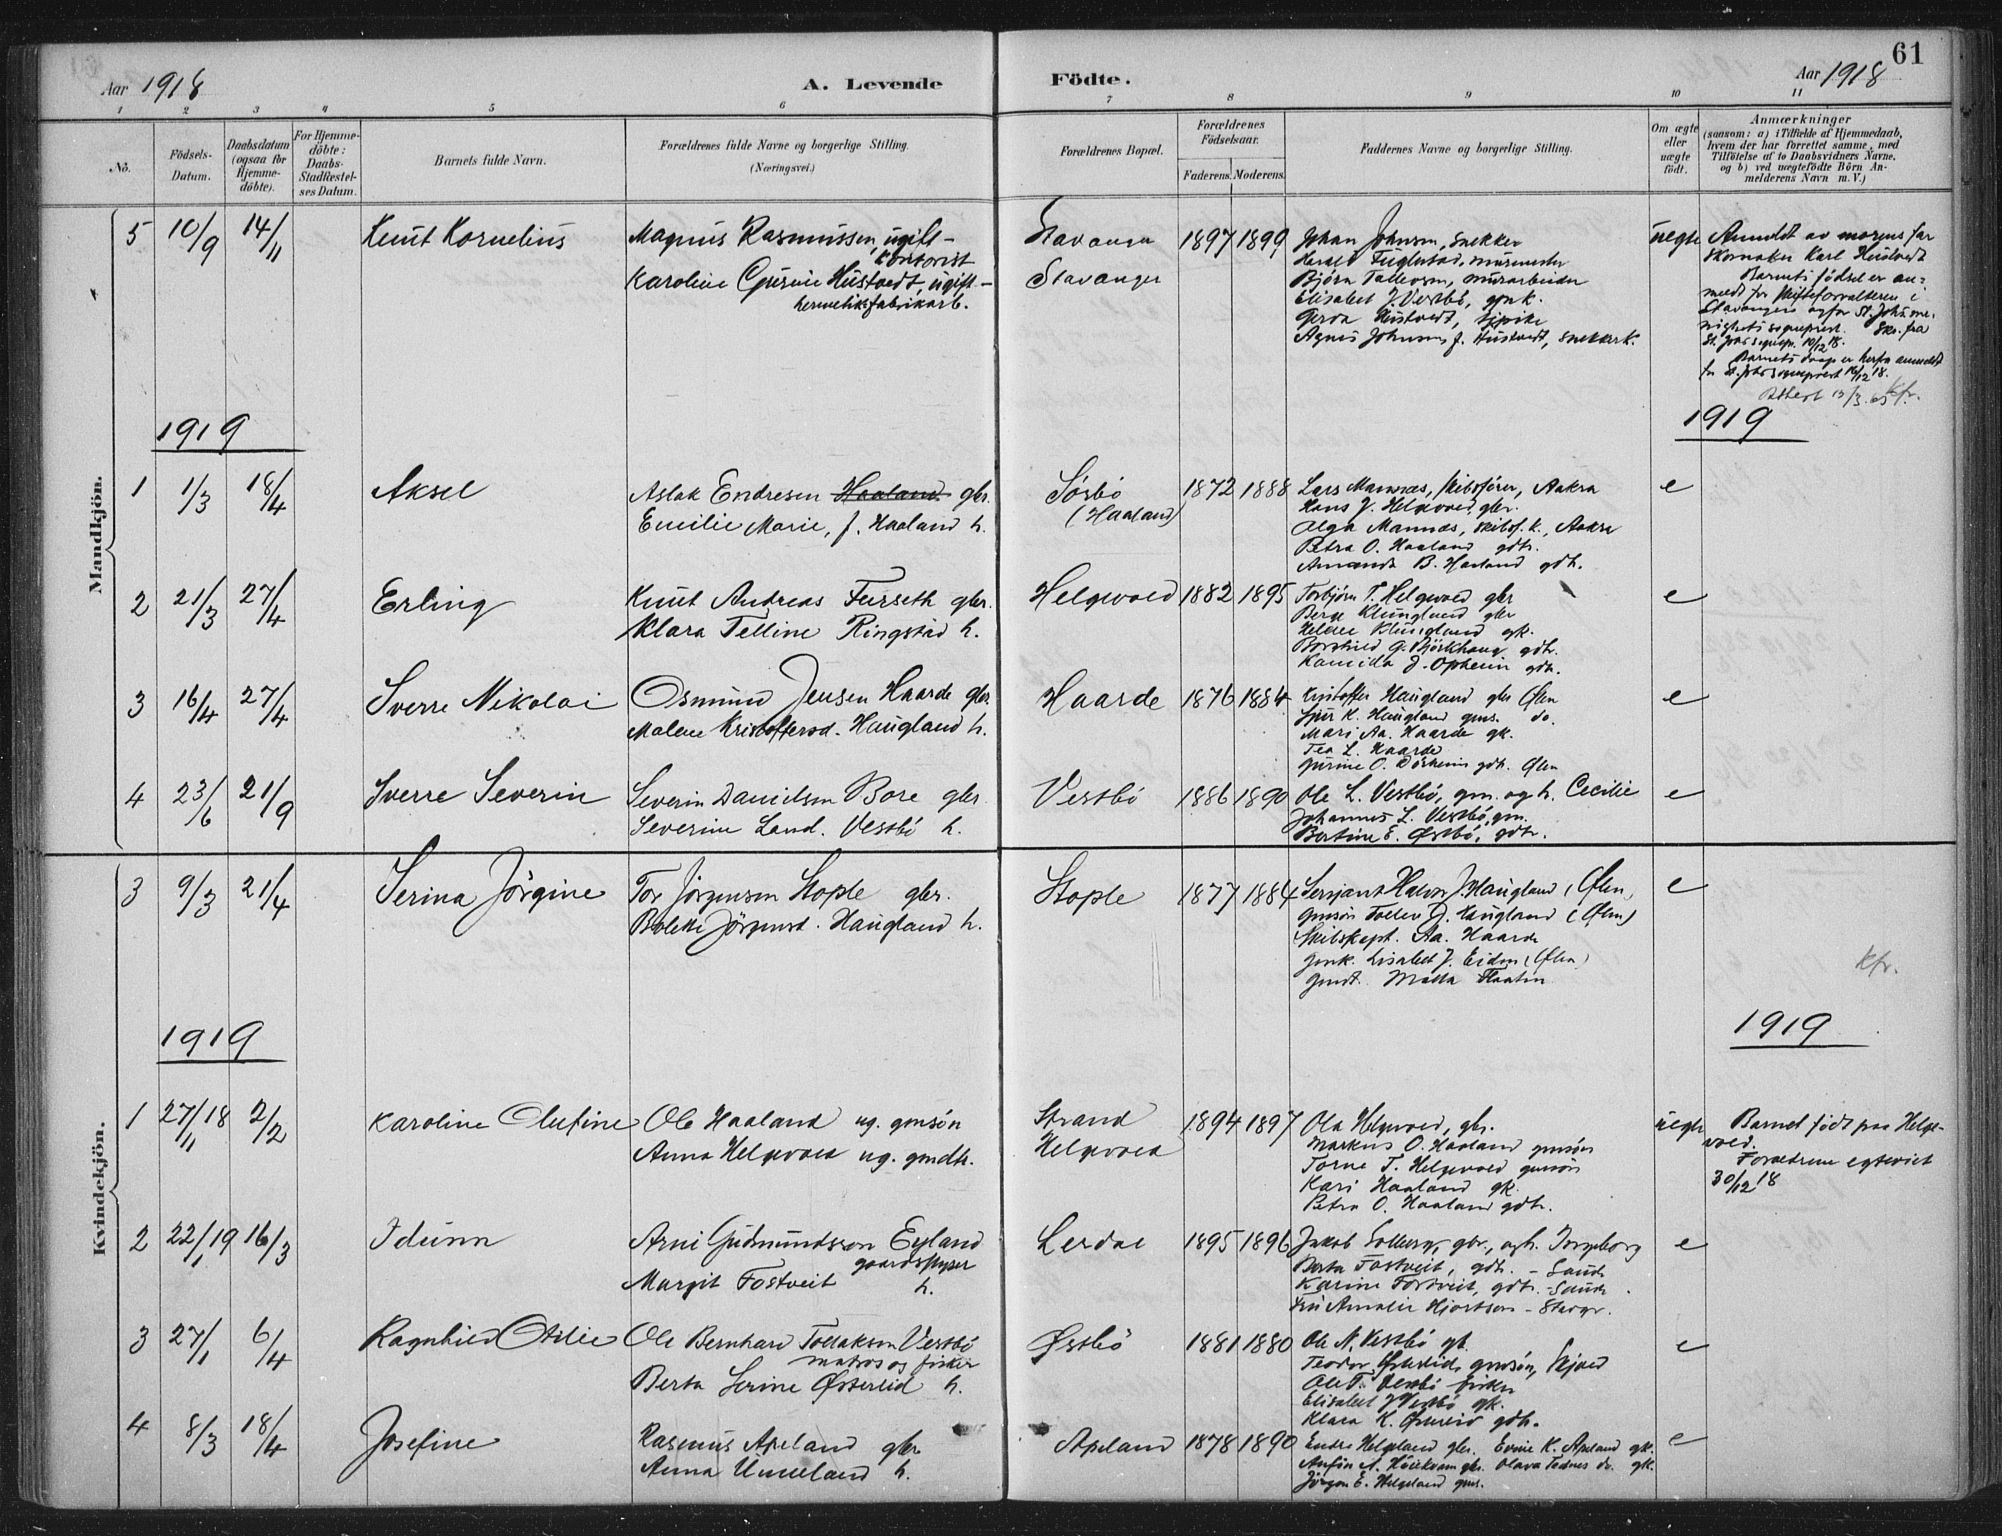 61
Aar 1918 A. Levende Födte. Aar 1918
1 2 3 4 5 6 7 8 9 10 11
No.
Födsels-Datum.
Daabsdatum (ogsaa for Hjemmedöbte).
For Hjemmedöbte: Daabs-Stadfestelses Datum.
Barnets fulde Navn.
Forældrenes fulde Navne og borgerlige Stilling. (Næringsvei.)
Forældrenes Bopæl.
Forældrenes Födselsaar.
Faderens. Moderens.
Faddernes Navne og borgerlige Stilling.
Om ægte eller uægte födt.
Anmærkninger
(saasom: a) i Tilfælde af Hjemmedaab,
hvem der har forrettet samme, med
Tilföielse af to Daabsvidners Navne,
og b) ved uægtefödte Börn An-
melderens Navn m. V.)
Mandkjön.
5 10/9 14/11 Knut Kornelius
Magnus Rasmussen, ugift -
kontorist
Karoline Gurine Hustvedt, ugift -
hermetikfabrikarb.
Stavanger 1897 1899
Stavanger
Johan Johnsen, snekker
Harald Fuglestad, murmester
Björn Tallevsen, murarbeider
Elisabet J. Vestbö, gmk.
Gerda Hustvedt, spike
Agnes Johnsen f. Hustvedt, snekkerk.
uegte
Anmeldt av morens far
Skomaker Karl Hustvedt
Barnets födsel er an-
meldt for skifteforvalteren i
1919 1919
1 1/3 18/4 Aksel
Aslak Endresen Haaland gbr.
Emilie Marie, f. Haaland h.
Sørbö
(Haaland)
1872 1888
Lars Mannes, skibsfører, Aakra
Hans J. Helgevold gbr.
Olga Mannes, skibsf. k., Aakra
Petra O. Haaland gdtr.
Amanda B. Haaland gdh.
e
2 21/3 27/4 Erling
Knut Andreas Furseth gbr.
Klara Telline Ringstad h.
Helgevold 1882 1895
Torbjörn T. Helgevold gbr
Berge Klungland gbr
Helene Klungland gk.
Borghild G. Björkhaug gdh.
Kamilla J. Opheim gdh.
e
3 16/4 27/4 Sverre Nikolai
Osmund Jensen Haarde gbr.
Malene Kristoffersd. Haugland h.
Haarde 1876 1884
Kristoffer Haugland gbr Ølen
Sjur K. Haugland gms. do.
Mari Aa. Haarde gk.
Tea L. Haarde
Gurine O. Dörheim gdh. Ølen
e
4 23/6 21/9 Sverre Severin
Severin Danielsen Bore gbr.
Severine Land. Vestbö h.
Vestbö 1886 1890
Ole L. Vestbö, gm. og h. Cecilie
Johannes L. Vestbö, gm.
Bertine E. Østbö, gdtr.
e
Kvindekjön.
3 9/3 21/4 Serina Jörgine
Tor Jörgensen Stople gbr.
Bolette Jörgensd. Haugland h.
Stople 1877 1884
Sersjant Halvor J. Haugland (Ølen)
gmsön Tollev J. Haugland (Ølen)
Skibskapt. Aa. Haarde
gmk. Lisabet J. Eiden (Ølen)
gmdt. Malla Flaaten
e
kfr.
1919 1919
1 27/11 18 2/2 Karoline Olufine
Ole Haaland ug. gmsön
Anna Helgevold ug. gmdtr.
Strand
Helgevold
1894 1897
Ola Helgevold, gbr.
Markus O. Haaland gmsön
Torne T. Helgevold gmsön
Kari Haaland gk.
Petra O. Haaland gdtr.
uegte
Barnet födt paa Helge-
vold.
Forældrene egteviet
30/12 18
2 22/1 19 16/3 Idunn
Arni Gudmundsson Eyland
gaardsstyrer
Margit Fostveit h.
Lerdal 1895 1896
Jakob Solberg, gbr., og h. Ingeborg
Berta Fostveit, gdh. - Saude
Karine Fostveit, gdtr. - Saude
Fru Amalie Hjortsen - Stavgr.
e
3 27/1 6/4 Ragnhild Otilie
Ole Bernhard Tollaksen Vestbö
matros og fisker
Berta Serine Østereid h.
Østbö 1881 1880
Ole N. Vestbö gk.
Teodor Østereid, gmsön, Skjold
Ole T. Vestbö fisker
Elisabet J. Vestbö gk.
Klara K. Østereid gdh.
e
4 8/3 18/4 Josefine
Rasmus Apeland gbr
Anna Ummeland h.
Apeland 1878 1890
Endre Helgeland gbr. Evine K. Apeland gk.
Anfin A. Höiekvam gbr. Olava Tednes do. gk.
Jörgen E. Helgeland gms.
e